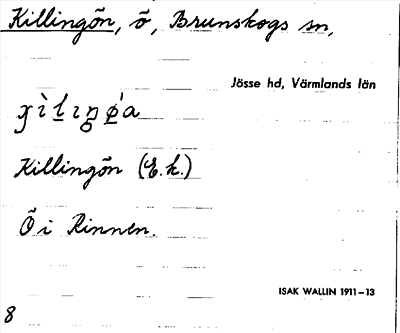 Killingön, ö, Brunskogs sn,
Jösse hd, Värmlands län
Killingön (E.k.)
Ö i Rinnen.
ISAK WALLIN 1911–13
8